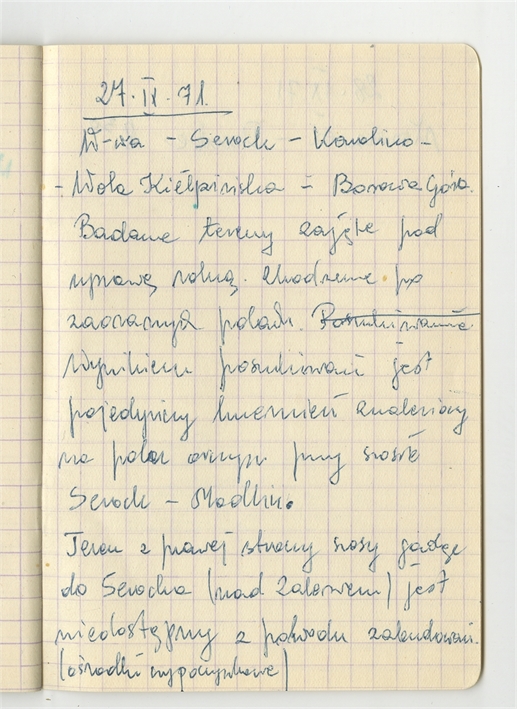 27.IX.71.
W-wa - Serock - Karolino -
- Wola Kiełpińska - Borowa Góra.
Badane tereny zajęte pod
uprawę rolną. Chodzenie po
zaoranych polach. Poszukiwania
Wynikiem poszukiwań jest
pojedynczy krzemień znaleziony
na polu ornym przy szosie
Serock - Modlin.
Teren z prawej strony szosy jadąc
do Serocka (nad Zalewem) jest
niedostępny z powodu zabudowań.
(ośrodki wypoczynkowe)